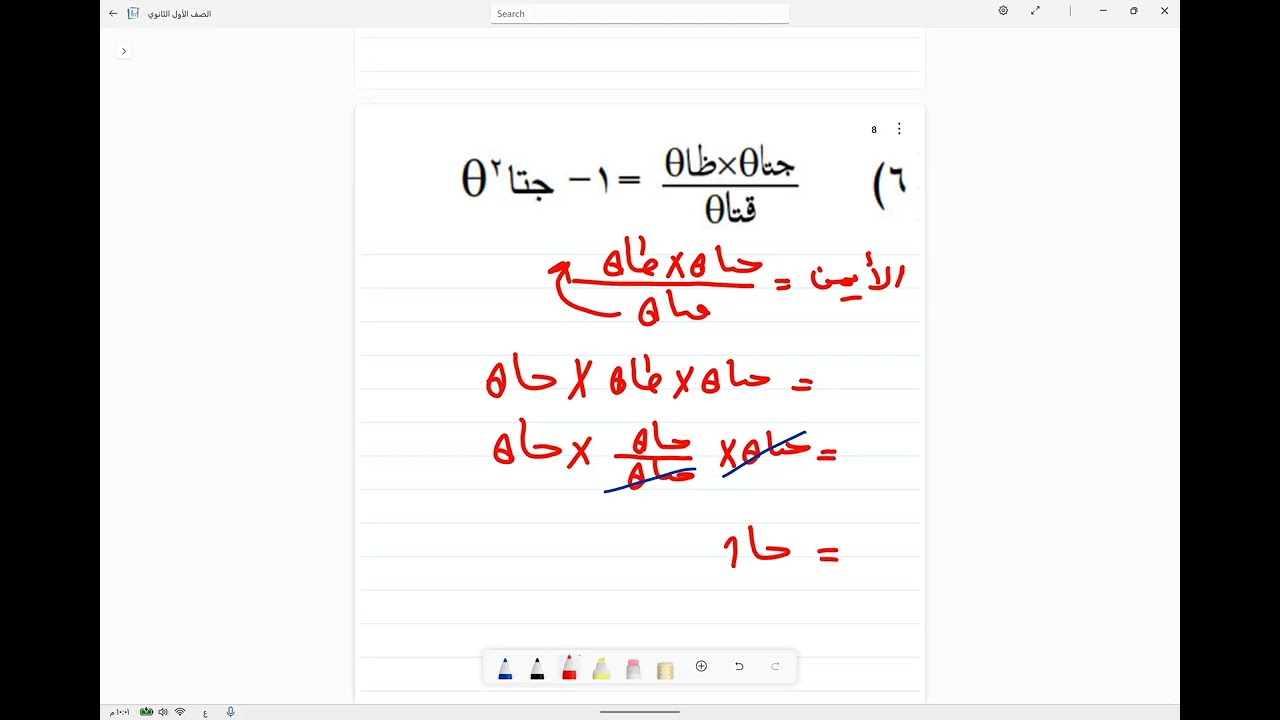 الصف الأول الثانوي
Search
8
٦) جتاθ×ظاθ / قتاθ = ١ − جتا٢θ
الأيمن = حتاθ × طاθ / قتاθ
= حتاθ × طاθ × حاθ
= حتاθ × حاθ / حتاθ × حاθ
= حا٢
١٠:٠١ م
ع